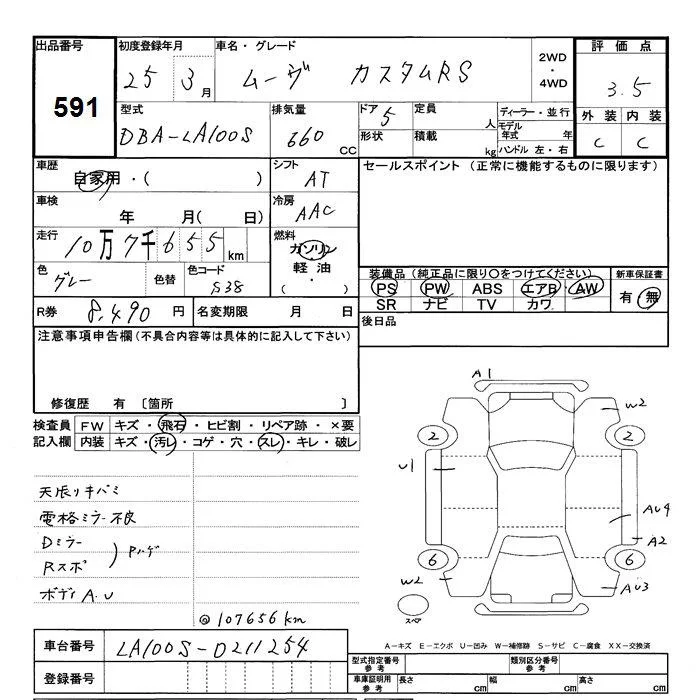 出品番号 初度登録年月 車名・グレード 2WD・4WD 評価点
591 25 3月 ムーヴ カスタムRS 3.5
型式 排気量 ドア 定員 ディーラー・並行 外装 内装
DBA-LA100S 660 CC 5 人 モデル年式 年 C C
形状 積載 kg ハンドル 左・右
車歴 シフト セールスポイント (正常に機能するものに限ります)
自家用・( ) AT
車検 冷房
年 月( 日) AAC
走行 燃料
10万7千655km ガソリン
軽油
・( )
色 色替 色コード 装備品(純正品に限り○をつけてください) 新車保証書
グレー S38 PS PW ABS エアB・AW 有・無
SR ナビ TV カワ
R券 8,490円 名変期限 月 日 後日品
注意事項申告欄(不具合内容等は具体的に記入して下さい)
修復歴 有 〔箇所 〕
検査員 FW キズ・飛石・ヒビ割・リペア跡・×要
記入欄 内装 キズ・汚レ・コゲ・穴・スレ・キレ・破レ
天張りキバミ
電格ミラー不良
Dミラー
Rスポ )Pハゲ
ボディA.U
@107656km
A1
W2
2 2
U1
AU4
A2
6 6
W2 AU3
スペア
A-キズ E-エクボ U-凹み W-補修跡 S-サビ C-腐食 XX-交換済
車台番号 LA100S-0211254
登録番号
型式指定番号 参考 類別区分番号 参考
車庫証明用 参考 長さ cm 幅 cm 高さ cm